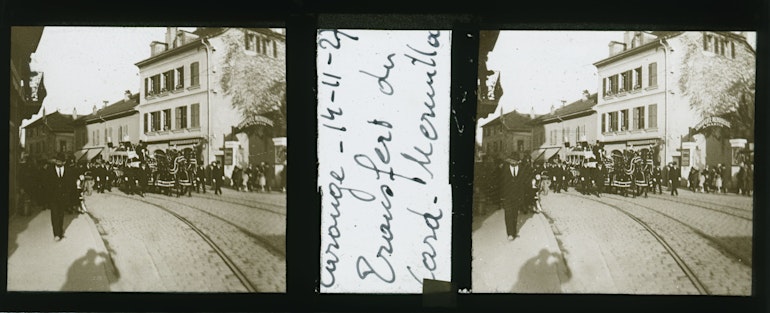 Carouge - 14-11-27
Transfert du
Card. Mermilla